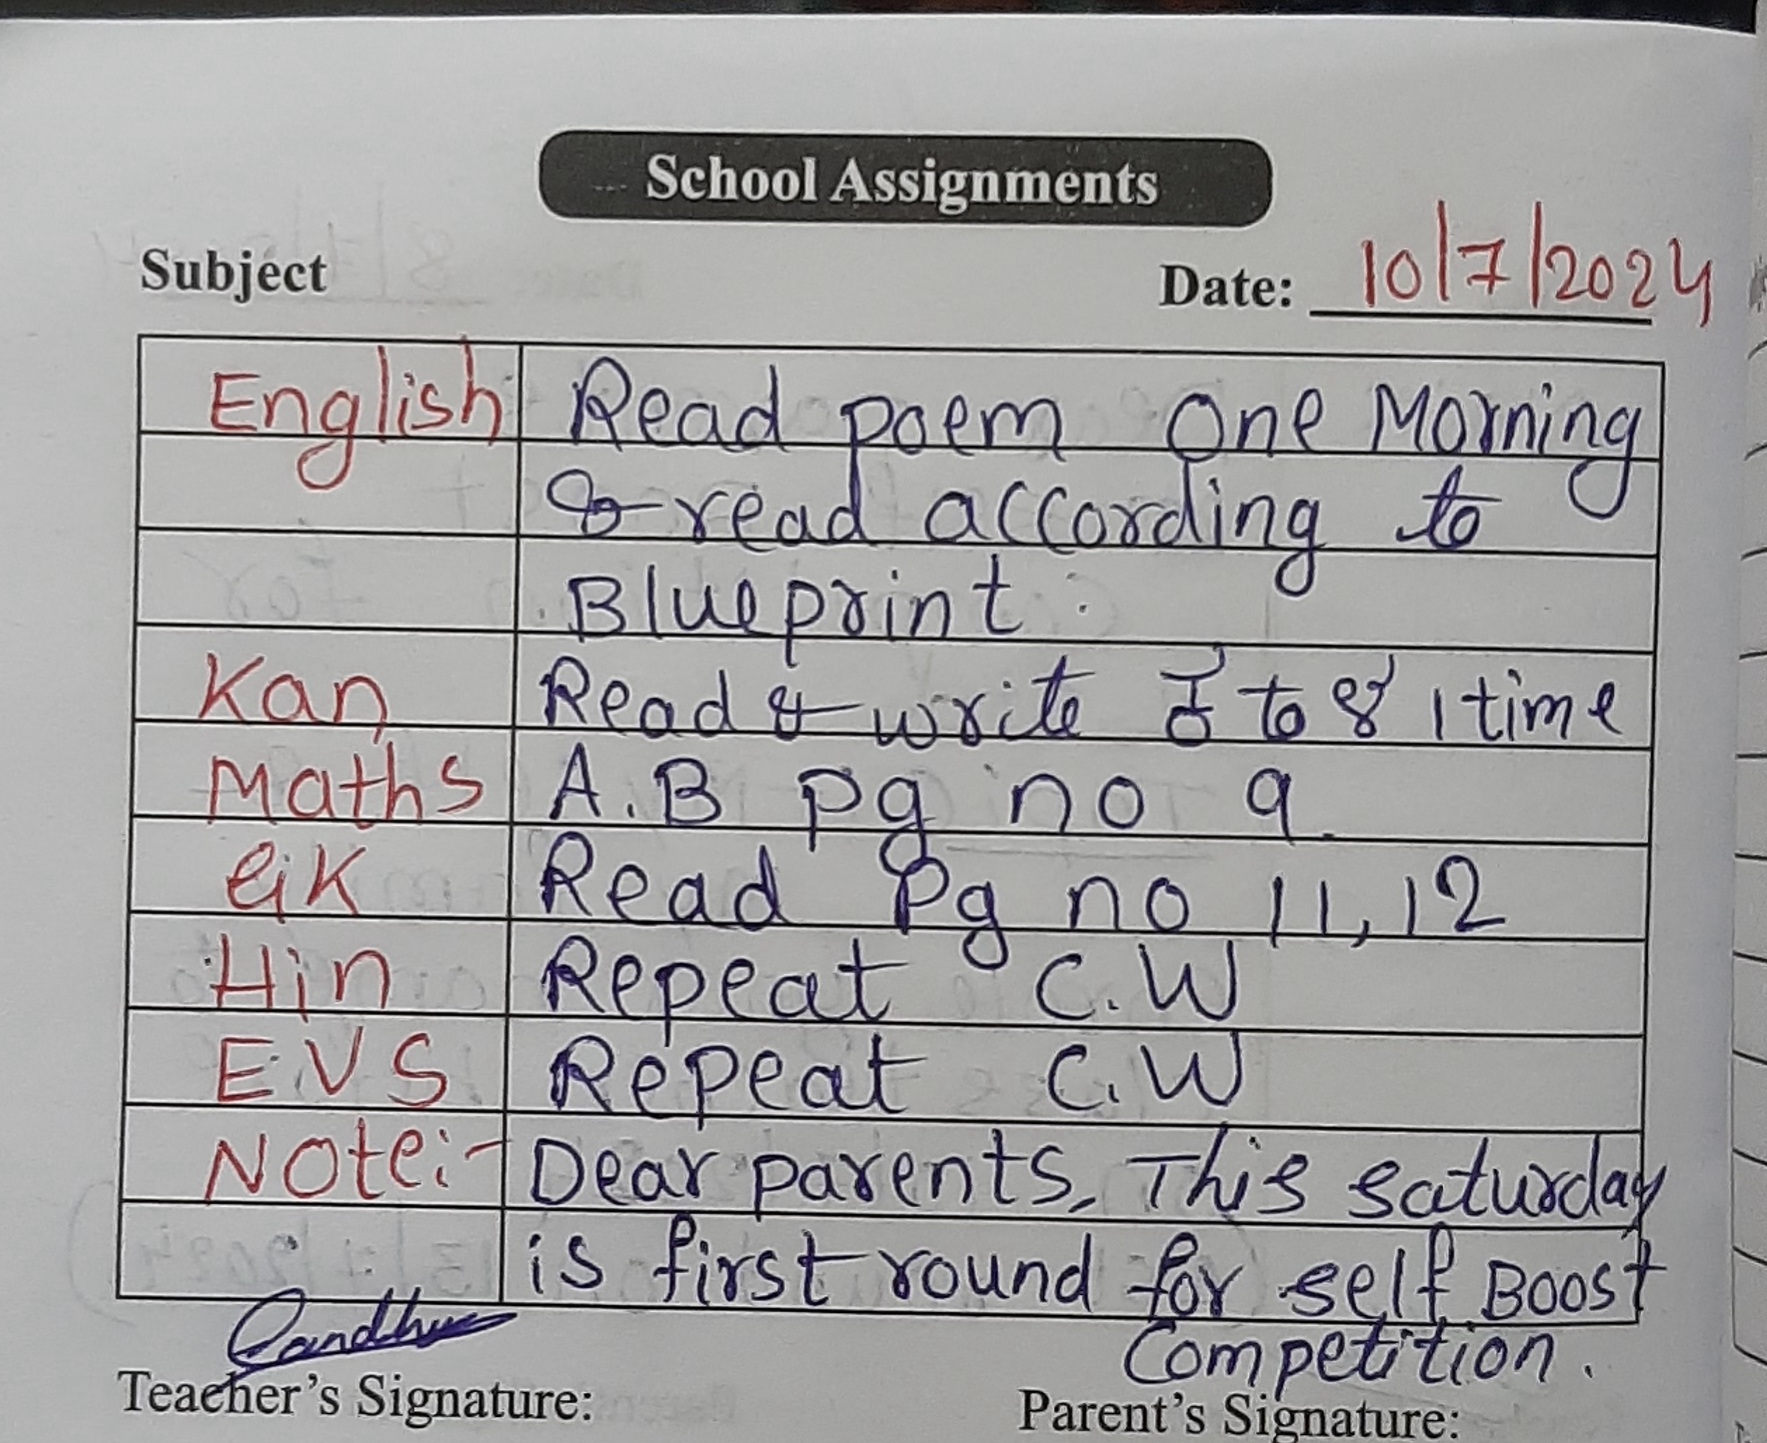 School Assignments
Subject
Date: 10/7/2024
English Read poem One Morning
& read according to
Blueprint.
Kan Read & write to 1 time
Maths A.B pg no 9.
G.K Read Pg no 11, 12
Hin Repeat C.W
E.V.S Repeat C.W
Note:- Dear parents, This saturday
is first round for self Boost
Competition.
Teacher's Signature:
Parent's Signature: